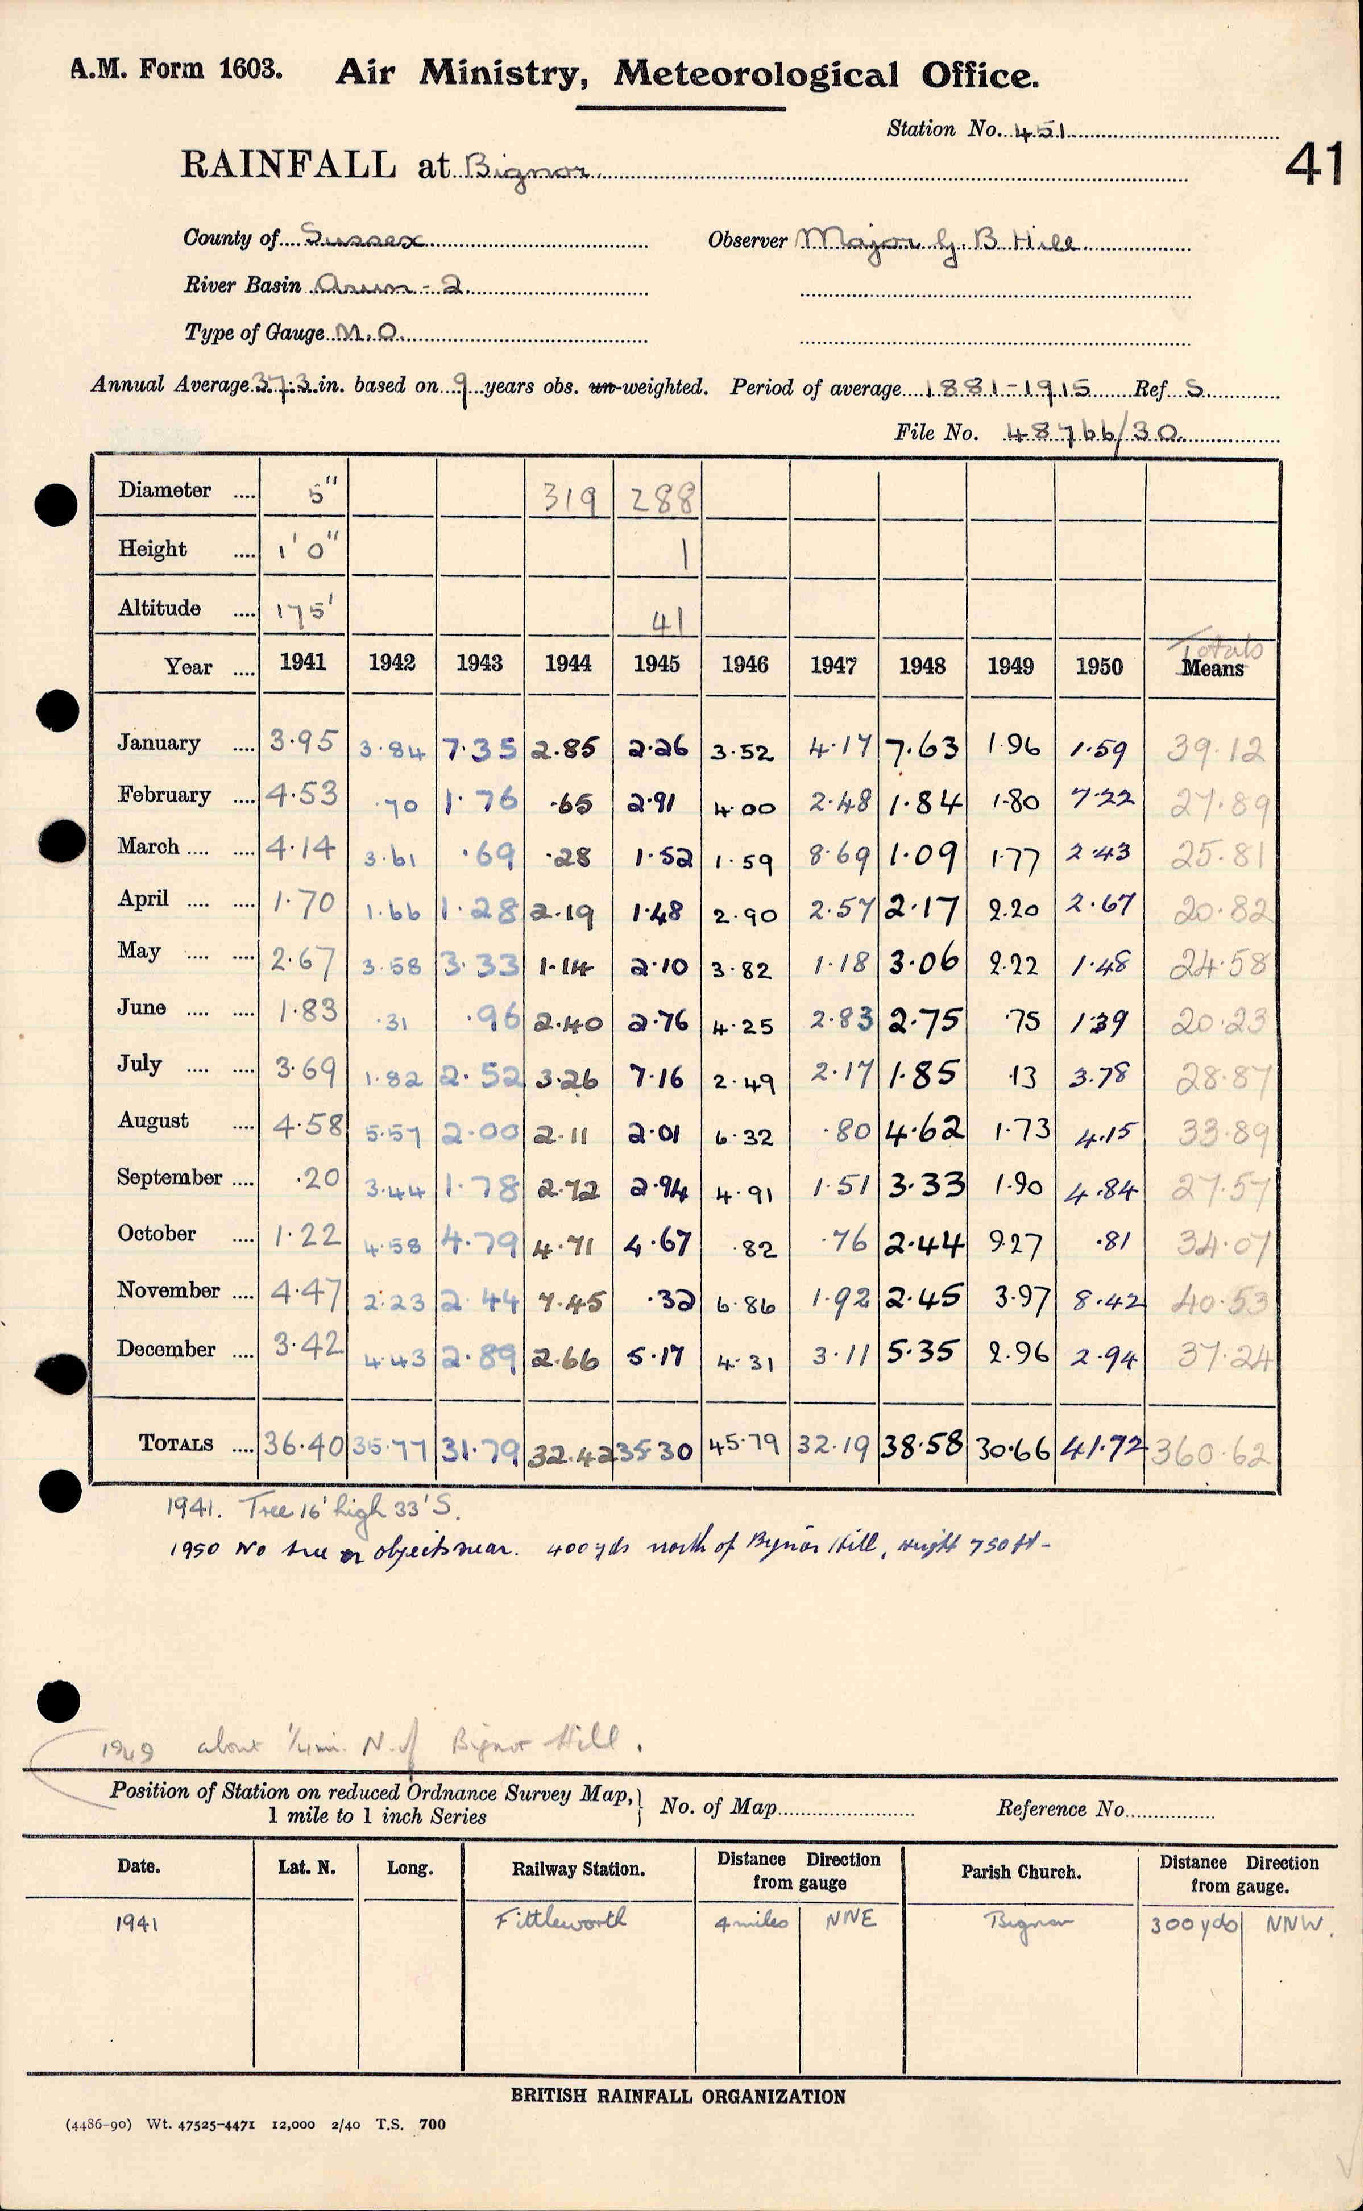 A.M. Form 1603. Air Ministry, Meteorological Office.
Station No. 451
41
RAINFALL at Bignor
County of Sussex Observer Major G. B Hill
River Basin Arun - 2
Type of Gauge M.O.
Annual Average 37.3 in. based on 9 years obs. un-weighted. Period of average 1881-1915 Ref. S
File No. 48766/30
Diameter .... 5" 319 288
Height .... 1' 0" 1
Altitude .... 175' 41
Totals
Year .... 1941 1942 1943 1944 1945 1946 1947 1948 1949 1950 Means
January .... 3.95 3.84 7.35 2.85 2.26 3.52 4.17 7.63 1.96 1.59 39.12
February .... 4.53 .70 1.76 .65 2.91 4.00 2.48 1.84 1.80 7.22 27.89
March .... .... 4.14 3.61 .69 .28 1.52 1.59 8.69 1.09 1.77 2.43 25.81
April .... .... 1.70 1.66 1.28 2.19 1.48 2.90 2.57 2.17 2.20 2.67 20.82
May .... .... 2.67 3.58 3.33 1.14 2.10 3.82 1.18 3.06 2.22 1.48 24.58
June .... .... 1.83 .31 .96 2.40 2.76 4.25 2.83 2.75 .75 1.39 20.23
July .... .... 3.69 1.82 2.52 3.26 7.16 2.49 2.17 1.85 .13 3.78 28.87
August .... 4.58 5.57 2.00 2.11 2.01 6.32 .80 4.62 1.73 4.15 33.89
September .... .20 3.44 1.78 2.72 2.94 4.91 1.51 3.33 1.90 4.84 27.57
October .... 1.22 4.58 4.79 4.71 4.67 .82 .76 2.44 9.27 .81 34.07
November .... 4.47 2.23 2.44 7.45 .32 6.86 1.92 2.45 3.97 8.42 40.53
December .... 3.42 4.43 2.89 2.66 5.17 4.31 3.11 5.35 2.96 2.94 37.24
TOTALS .... 36.40 35.77 31.79 32.42 35.30 45.79 32.19 38.58 30.66 41.72 360.62
1941. Tree 16' high 33' S.
1950 No tree or objects near. 400 yds north of Bignor Hill, height 750 ft -
1949 about 1/4 mi. N. of Bignor Hill.
Position of Station on reduced Ordnance Survey Map, 1 mile to 1 inch Series } No. of Map Reference No.
Date. Lat. N. Long. Railway Station. Distance Direction from gauge Parish Church. Distance Direction from gauge.
1941 Fittleworth 4 miles NNE Bignor 300 yds NNW.
BRITISH RAINFALL ORGANIZATION
(4486-90) Wt. 47525-4471 12,000 2/40 T.S. 700